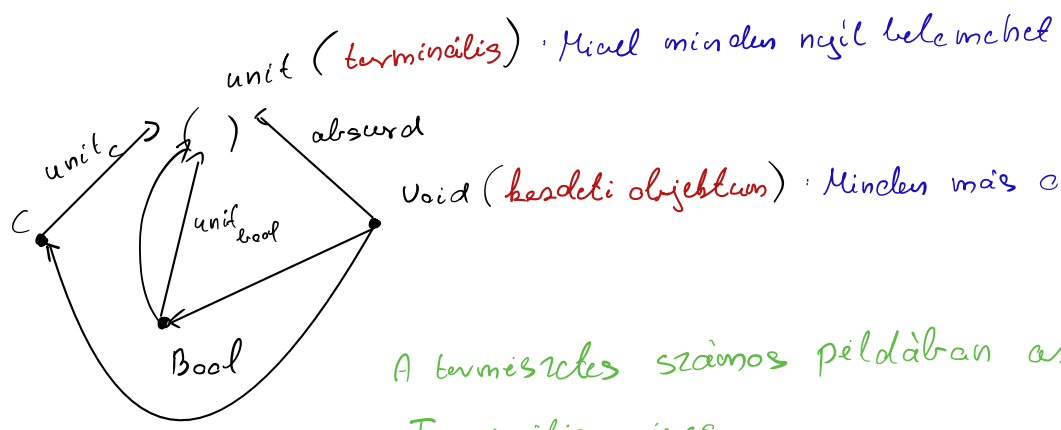 unit (terminális) : Mivel minden nyíl belemehet
( )
absurd
unit_c
Void (kezdeti objektum) : Minden más
C
unit_bool
Bool
A természetes számos példában